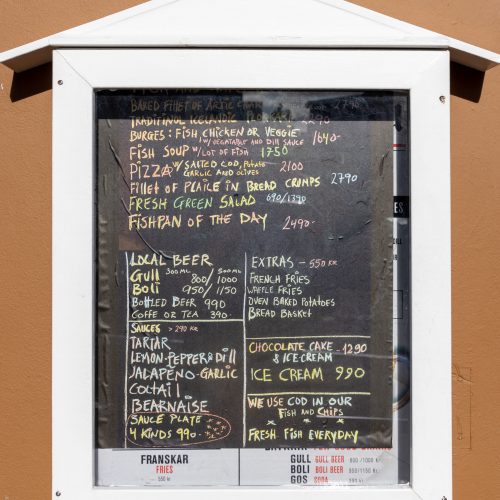 BAKED FILLET OF ARCTIC CHAR 2790
TRADITIONAL ICELANDIC 2290
BURGES: FISH CHICKEN OR VEGGIE 1640-
W/VEGETABLE AND DILL SAUCE
FISH SOUP W/LOT OF FISH 1750
PIZZA W/ SALTED COD, POTATO 2100
GARLIC AND OLIVES
FILLET OF PLAICE IN BREAD CRUMPS 2790
FRESH GREEN SALAD 690/1390
FISHPAN OF THE DAY 2490-
LOCAL BEER
300ML 500ML
GULL 800/1000
BOLI 950/1150
BOTTLED BEER 990
COFFE OR TEA 390-
SAUCES > 290 KR
TARTAR
LEMON-PEPPER & DILL
JALAPEÑO-GARLIC
COCTAIL
BEARNAISE
SAUCE PLATE
4 KINDS 990-
EXTRAS - 550 KR
FRENCH FRIES
WAFFLE FRIES
OVEN BAKED POTATOES
BREAD BASKET
CHOCOLATE CAKE - 1290
& ICE CREAM
ICE CREAM 990
WE USE COD IN OUR
FISH AND CHIPS
FRESH FISH EVERYDAY
FRANSKAR
FRIES
550 kr
GULL GULL BEER 800/1000 kr
BOLI BOLI BEER 950/1150 kr
GOS SODA 390 kr